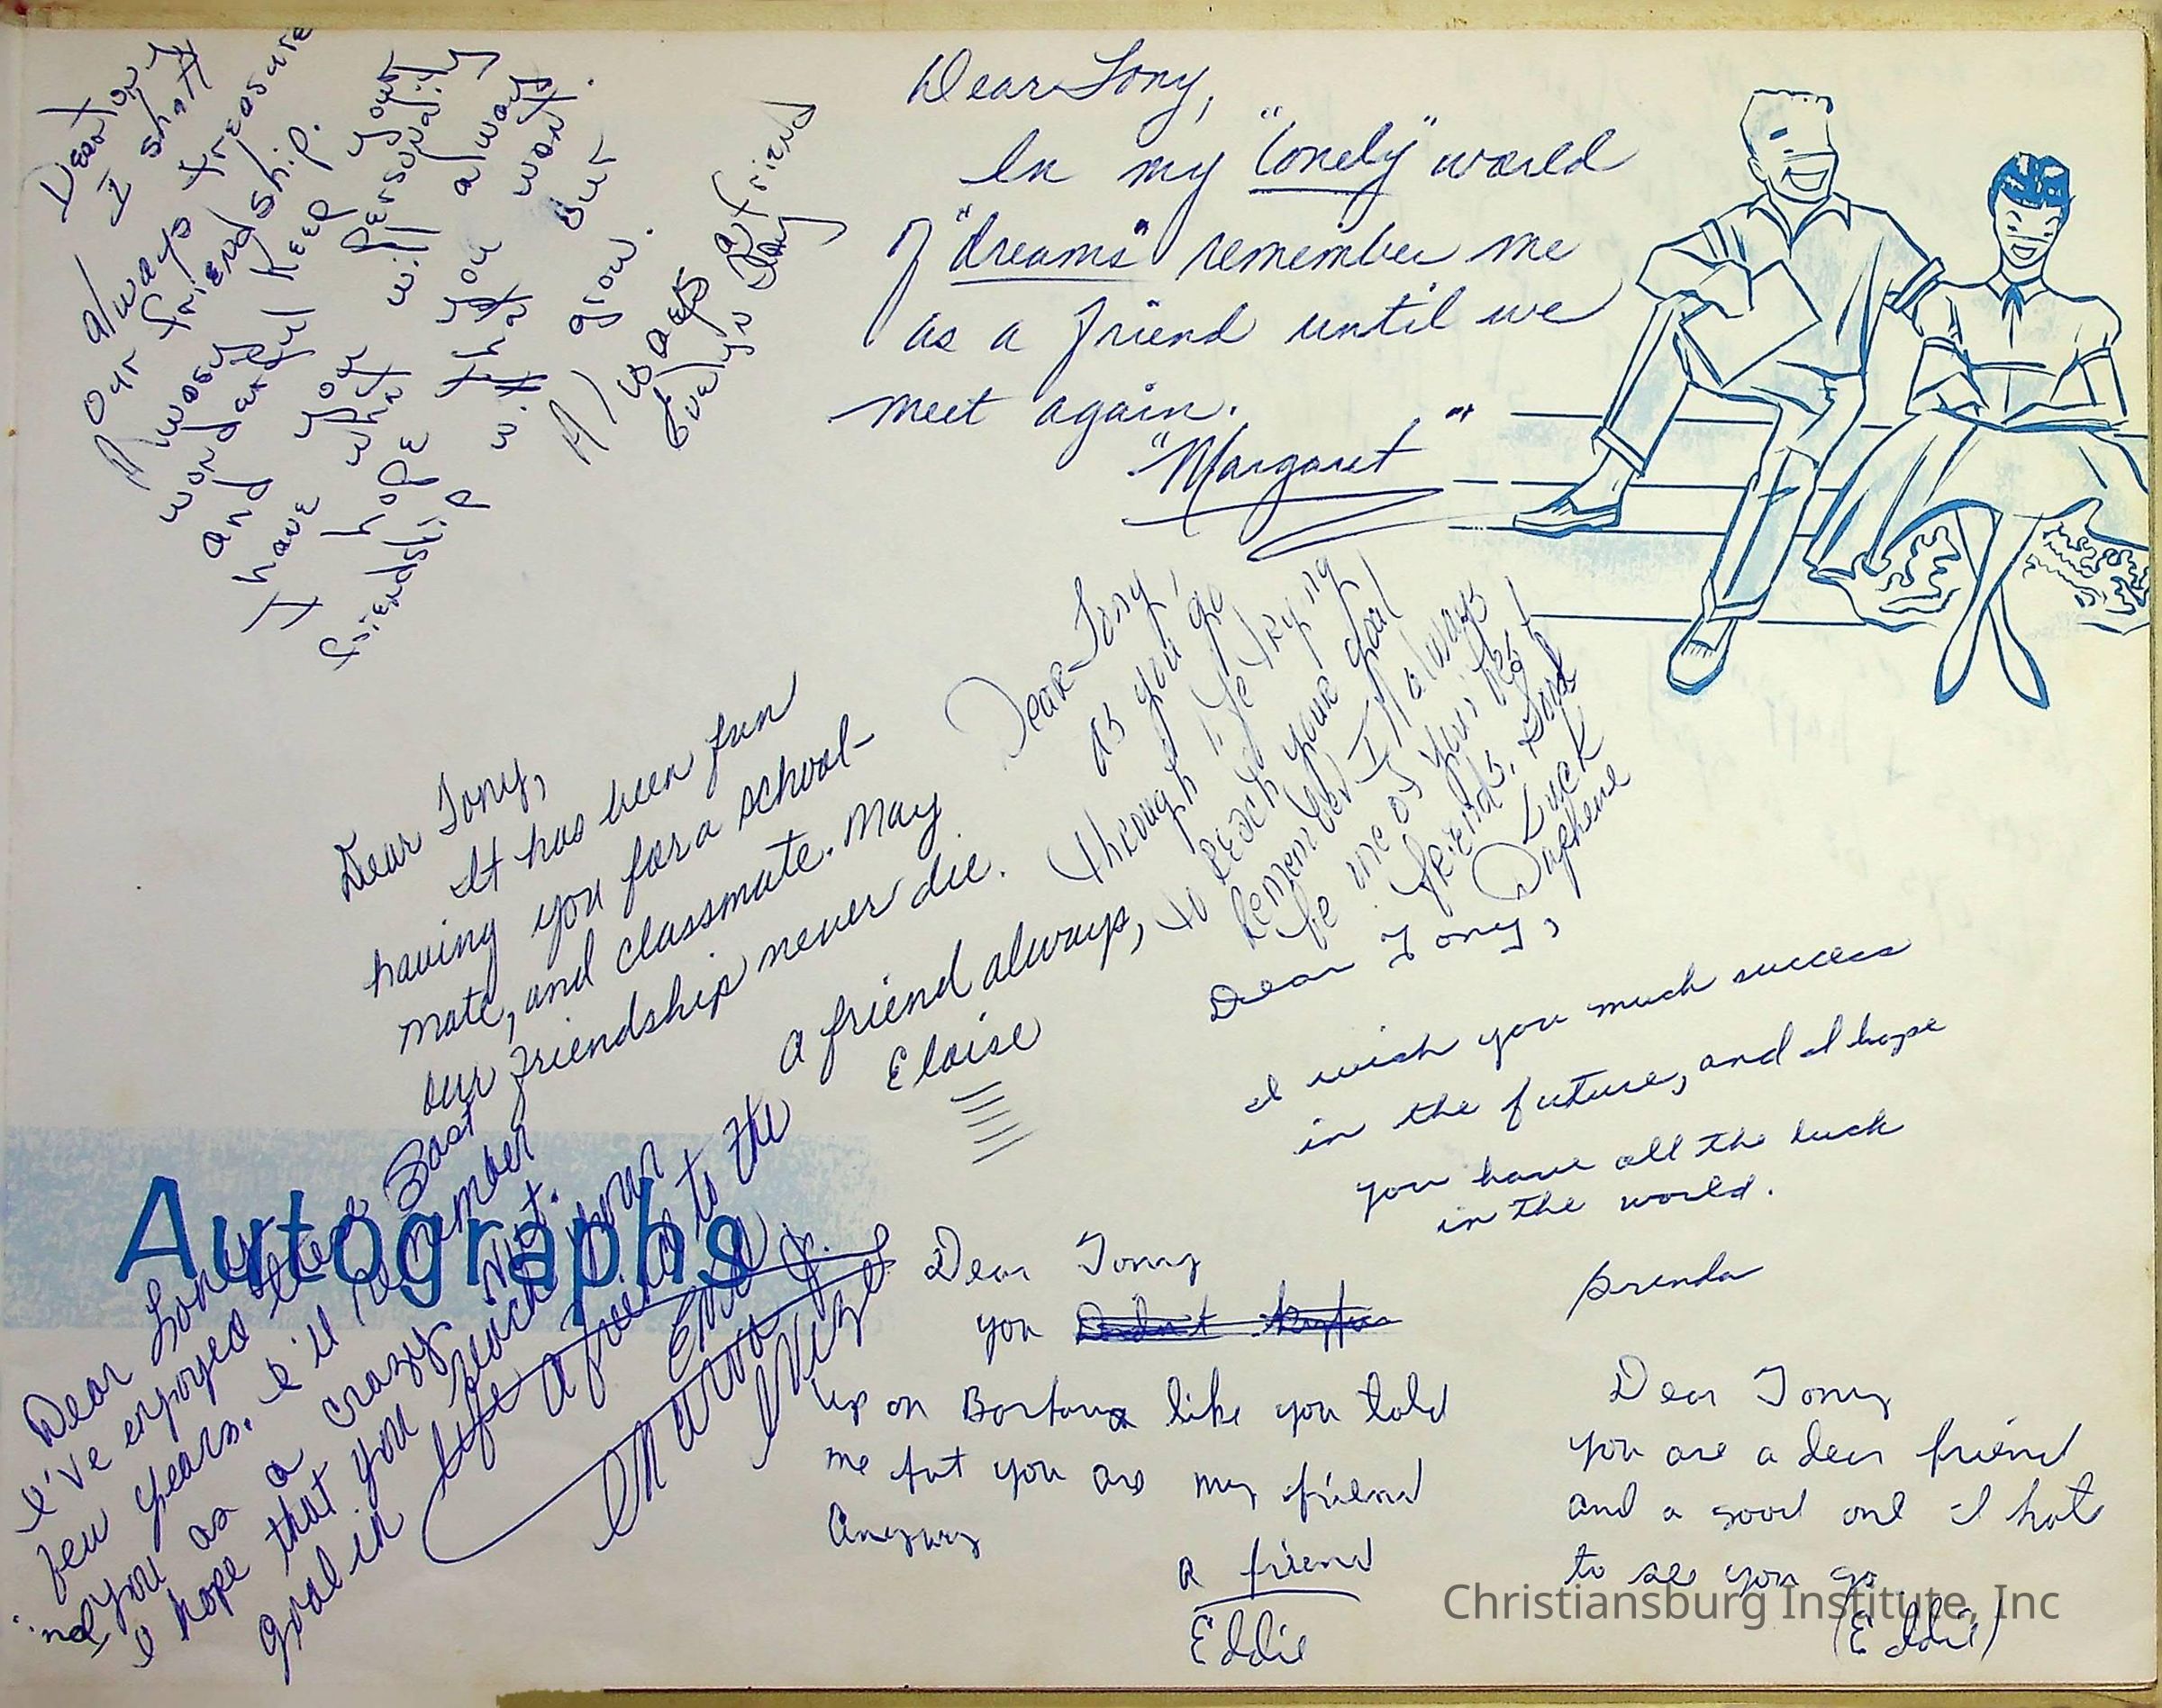 Dear Tony
I shall
always treasure
our friendship.
Alwasy keep your
wondarful personality
and you will always
I have what you want.
I hope
friendship will grow.
Always a friend
Evelyn Day
Dear Tony,
In my "lonely" world
of "dreams" remember me
as a friend until we
meet again.
"Margaret"
Dear Tony,
It has been fun
having you for a school-
mate, and classmate. May
our friendship never die.
A friend always,
Eloise
Dear Tony
As you go
through life trying
to reach your goal
remember I'll always
be one of your best
friends. Good
Luck
Daphene
Dear Tony,
I wish you much success
in the future, and I hope
you have all the luck
in the world.
Brenda
Autographs
Dear Tony
I've enjoyed these past
few years. I'll remember
you as a crazy nut.
I hope that you reach your
goal in life a friend to the
End
Dear Tony
you Didn't
up on Barbara like you told
me but you are my friend
Anyway
a friend
Eddie
Dear Tony
you are a dear friend
and a good one I hate
to see you go
(Eddie)
Christiansburg Institute, Inc